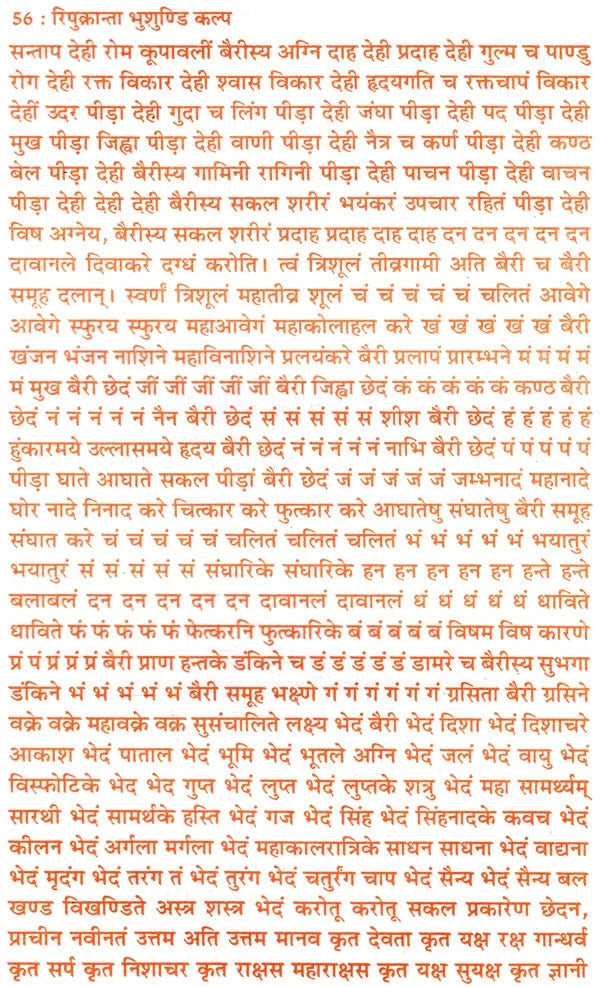 56 : रिपुक्रान्ता भुशुण्डि कल्प
सन्ताप देही रोम कूपावलीं बैरीस्य अग्नि दाह देही प्रदाह देही गुल्म च पाण्डु
रोग देही रक्त विकार देही श्वास विकार देही हृदयगति च रक्तचापं विकार
देहीं उदर पीड़ा देही गुदा च लिंग पीड़ा देही जंघा पीड़ा देही पद पीड़ा देही
मुख पीड़ा जिह्वा पीड़ा देही वाणी पीड़ा देही नैत्र च कर्ण पीड़ा देही कण्ठ
बेल पीड़ा देही बैरीस्य गामिनी रागिनी पीड़ा देही पाचन पीड़ा देही वाचन
पीड़ा देही देही देही बैरीस्य सकल शरीरं भयंकरं उपचार रहितं पीड़ा देही
विष अग्नेय, बैरीस्य सकल शरीरं प्रदाह प्रदाह दाह दाह दन दन दन दन दन
दावानले दिवाकरे दग्धं करोति। त्वं त्रिशूलं तीव्रगामी अति बैरी च बैरी
समूह दलान्। स्वर्णं त्रिशूलं महातीव्र शूलं चं चं चं चं चं चलितं आवेगे
आवेगे स्फुरय स्फुरय महाआवेगं महाकोलाहल करे खं खं खं खं खं बैरी
खंजन भंजन नाशिने महाविनाशिने प्रलयंकरे बैरी प्रलापं प्रारम्भने मं मं मं मं
मं मुख बैरी छेदं जीं जीं जीं जीं जीं बैरी जिह्वा छेदं कं कं कं कं कं कण्ठ बैरी
छेदं नं नं नं नं नं नैन बैरी छेदं सं सं सं सं सं शीश बैरी छेदं हं हं हं हं हं
हुंकारमये उल्लासमये हृदय बैरी छेदं नं नं नं नं नं नाभि बैरी छेदं पं पं पं पं पं
पीड़ा घाते आघाते सकल पीड़ां बैरी छेदं जं जं जं जं जं जम्भनादं महानादे
घोर नादे निनाद करे चित्कार करे फुत्कार करे आघातेषु संघातेषु बैरी समूह
संघात करे चं चं चं चं चं चलितं चलितं चलितं भं भं भं भं भं भयातुरं
भयातुरं सं सं सं सं सं संघारिके संघारिके हन हन हन हन हन हन्ते हन्ते
बलाबलं दन दन दन दन दन दावानलं दावानलं धं धं धं धं धं धाविते
धाविते फं फं फं फं फं फेत्करनि फुत्कारिके बं बं बं बं बं विषम विष कारणे
प्रं पं प्रं प्रं प्रं बैरी प्राण हन्तके डंकिने च डं डं डं डं डं डामरे च बैरीस्य सुभगा
डंकिने भं भं भं भं भं बैरी समूह भक्ष्णे गं गं गं गं गं ग्रसिता बैरी ग्रसिने
वक्रे वक्रे महावक्रे वक्र सुसंचालिते लक्ष्य भेदं बैरी भेदं दिशा भेदं दिशाचरे
आकाश भेदं पाताल भेदं भूमि भेदं भूतले अग्नि भेदं जलं भेदं वायु भेदं
विस्फोटिके भेद भेद गुप्त भेदं लुप्त भेदं लुप्तके शत्रु भेदं महा सामर्थ्यम्
सारथी भेदं सामर्थके हस्ति भेदं गज भेदं सिंह भेदं सिंहनादके कवच भेदं
कीलन भेदं अर्गला मर्गला भेदं महाकालरात्रिके साधन साधना भेदं वाद्यना
भेदं मृदंग भेदं तरंग तं भेदं तुरंग भेदं चतुर्रंग चाप भेदं सैन्य भेदं सैन्य बल
खण्ड विखण्डिते अस्त्र शस्त्र भेदं करोतू करोतू सकल प्रकारेण छेदन,
प्राचीन नवीनतं उत्तम अति उत्तम मानव कृत देवता कृत यक्ष रक्ष गान्धर्व
कृत सर्प कृत निशाचर कृत राक्षस महाराक्षस कृत यक्ष सुयक्ष कृत ज्ञानी